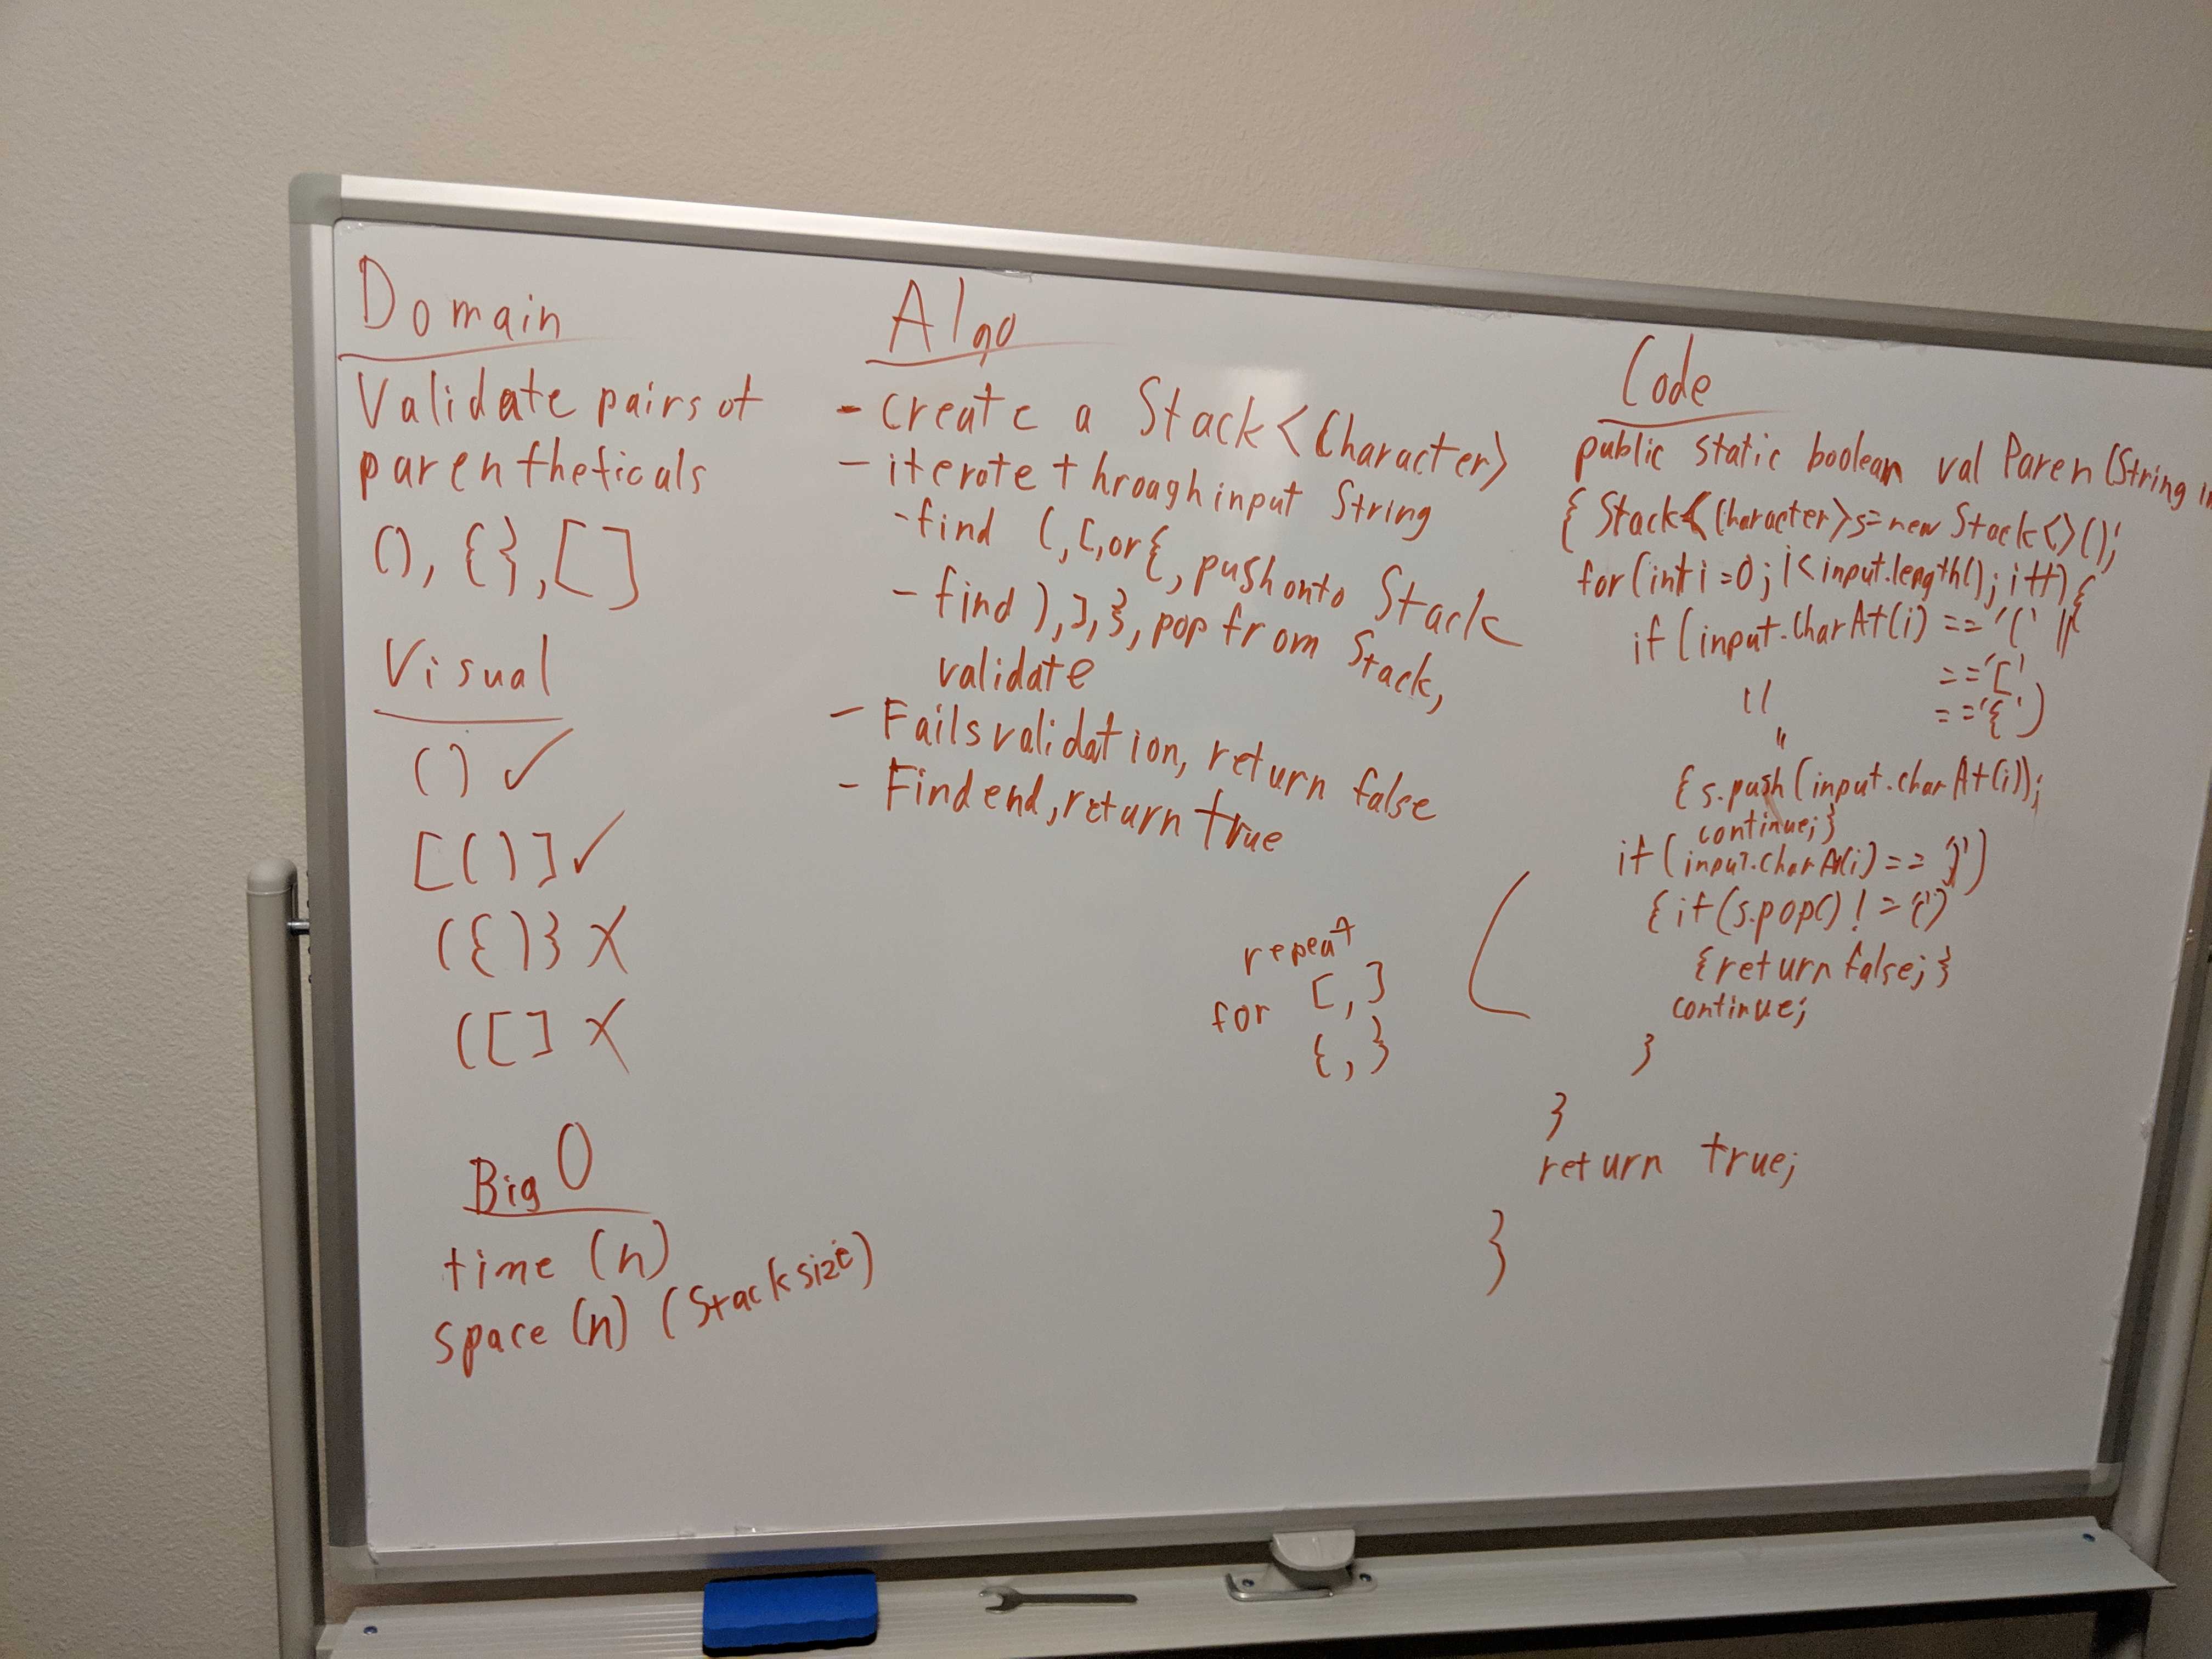 Domain
Validate pairs of
parentheticals
(), {}, []
Visual
() ✓
[()] ✓
({)} X
([] X
Big O
time (n)
space (n) (Stack size)
Algo
- create a Stack<Character>
- iterate through input String
- find (, [, or {, push onto Stack
- find ), ], }, pop from Stack,
validate
- Fails validation, return false
- Find end, return true
repeat
for [, ]
{, }
Code
public static boolean val Paren (String
{ Stack<Character> s = new Stack<>();
for (int i = 0; i < input.length(); i++) {
if (input.charAt(i) == '(' ||
" == '['
" == '{')
{ s.push(input.charAt(i));
continue; }
if (input.charAt(i) == ')')
{ if (s.pop() != '(')
{ return false; }
continue;
}
}
return true;
}